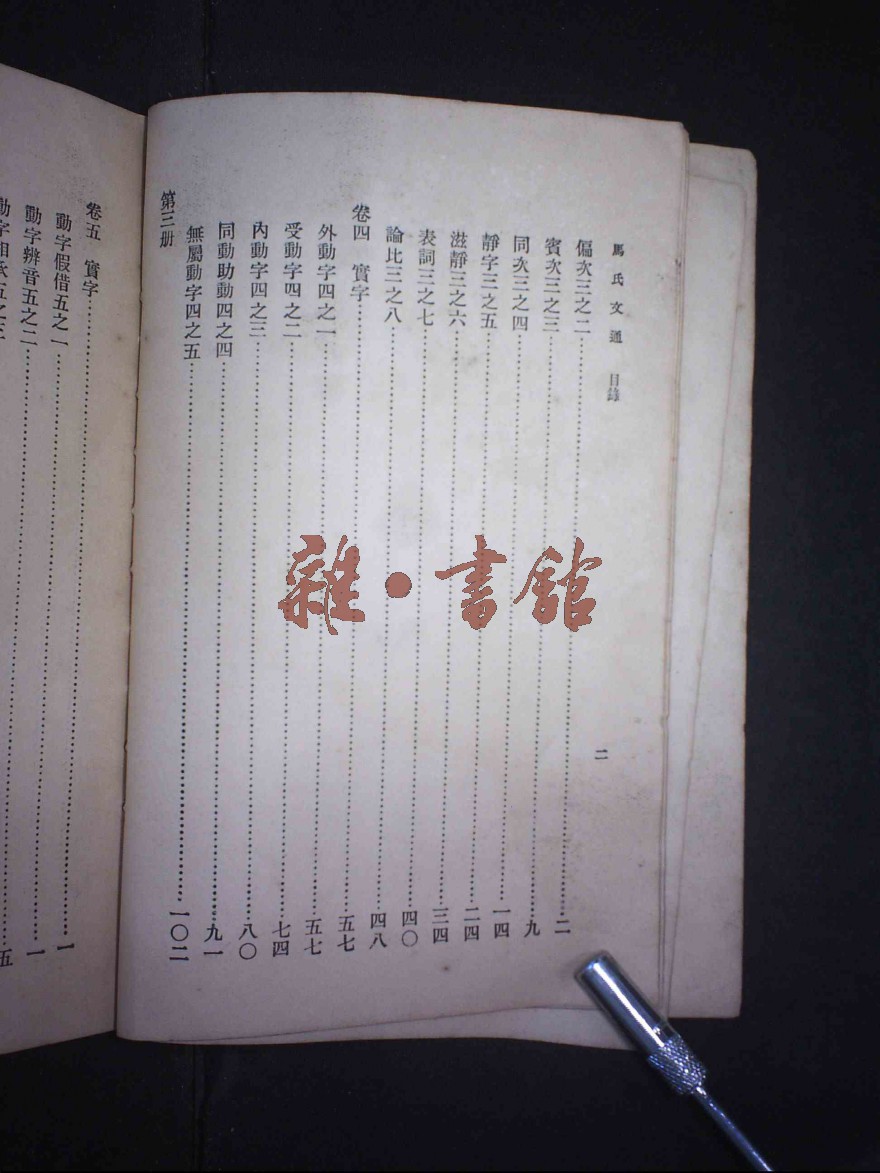 馬氏文通 目錄
二
偏次三之二……二
賓次三之三……九
同次三之四……一四
靜字三之五……二四
滋靜三之六……三四
表詞三之七……四〇
論比三之八……四八
卷四 實字……五七
外動字四之一……五七
受動字四之二……七四
內動字四之三……八〇
同動助動四之四……九一
無屬動字四之五……一〇二
第三册
卷五 實字……一
動字假借五之一……一
動字辨音五之二……五
雜·書館